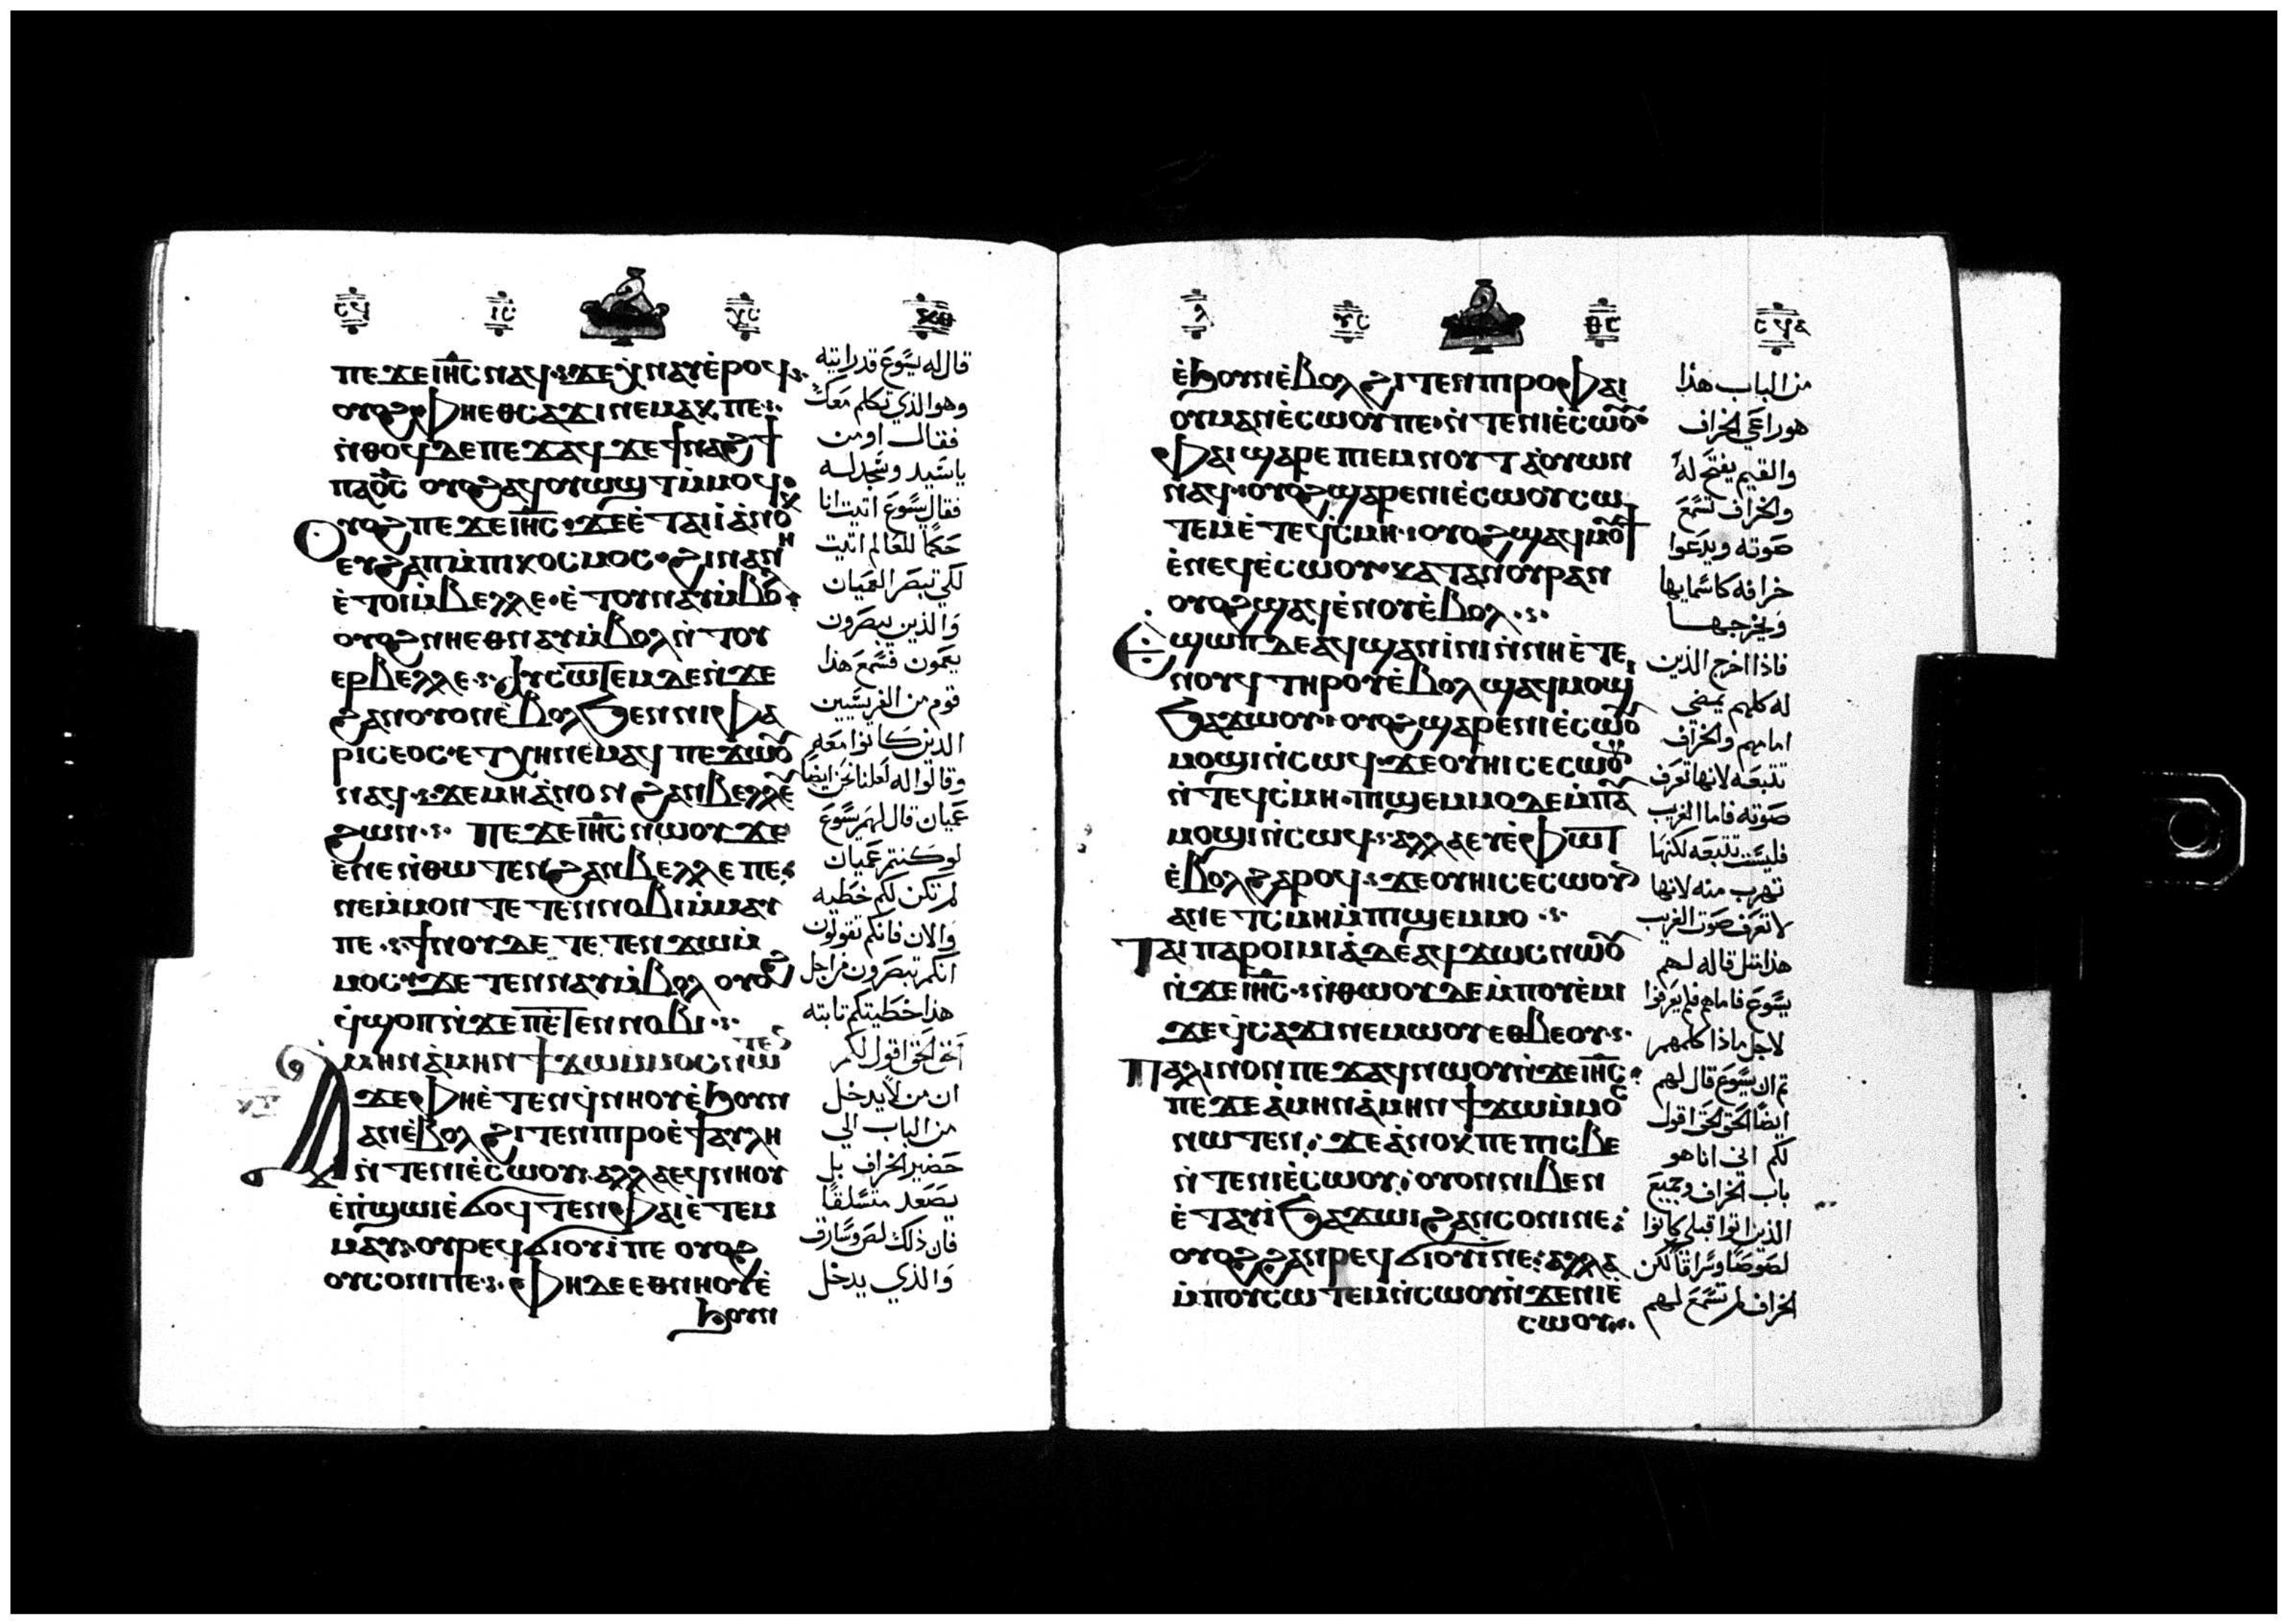 ⲡⲉϫⲉ ⲓⲏⲥ ⲛⲁϥ ϫⲉ ⲁⲕⲛⲁⲩ ⲉ̀ⲣⲟϥ
ⲟⲩⲟϩ ⲫⲏⲉⲑⲥⲁϫⲓ ⲛⲉⲙⲁⲕ ⲡⲉ
ⲛ̀ⲑⲟϥ ⲇⲉ ⲡⲉϫⲁϥ ϫⲉ ϯⲛⲁϩϯ
ⲡⲁⲟ̅ⲥ̅ ⲟⲩⲟϩ ⲁϥⲟⲩⲱϣⲧ ⲙ̀ⲙⲟϥ
ⲟⲩⲟϩ ⲡⲉϫⲉ ⲓⲏⲥ ϫⲉ ⲉ̀ⲧⲁⲓⲓ̀ ⲁ̀ⲛⲟⲕ
ⲉⲩϩⲁⲡ ⲙ̀ⲡⲓⲕⲟⲥⲙⲟⲥ ϩⲓⲛⲁ ⲛⲏ
ⲉ̀ⲧⲟⲓ ⲙ̀ⲃⲉⲗⲗⲉ ⲉ̀ⲧⲟⲩⲛⲁⲩ ⲙ̀ⲃⲟⲗ
ⲟⲩⲟϩ ⲛⲏⲉⲑⲛⲁⲩ ⲙ̀ⲃⲟⲗ ⲛ̀ⲧⲟⲩ
ⲉⲣⲃⲉⲗⲗⲉ ⲁⲩⲥⲱⲧⲉⲙ ⲇⲉ ⲛ̀ϫⲉ
ϩⲁⲛⲟⲩⲟⲛ ⲉ̀ⲃⲟⲗ ϧⲉⲛ ⲛⲓⲫⲁ
ⲣⲓⲥⲉⲟⲥ ⲉⲧⲭⲏ ⲛⲉⲙⲁϥ ⲡⲉϫⲱⲟⲩ
ⲛⲁϥ ϫⲉ ⲙⲏ ⲁ̀ⲛⲟⲛ ϩⲁⲛⲃⲉⲗⲗⲉ
ϩⲱⲛ ⲡⲉϫⲉ ⲓⲏⲥ ⲛⲱⲟⲩ ϫⲉ
ⲉ̀ⲛⲉ ⲛ̀ⲑⲱⲧⲉⲛ ϩⲁⲛⲃⲉⲗⲗⲉ ⲡⲉ
ⲛⲉ ⲙ̀ⲙⲟⲛ ⲧⲉⲧⲉⲛ ⲛⲟⲃⲓ ⲙ̀ⲙⲁⲩ
ⲡⲉ ϯⲛⲟⲩ ⲇⲉ ⲧⲉⲧⲉⲛϫⲱ ⲙ̀
ⲙⲟⲥ ϫⲉ ⲧⲉⲛⲛⲁⲩ ⲙ̀ⲃⲟⲗ ⲟⲩⲟϩ
ϥ̀ϣⲟⲡ ⲛ̀ϫⲉ ⲡⲉⲧⲉⲛⲛⲟⲃⲓ
ⲁ̀ⲙⲏⲛ ⲁ̀ⲙⲏⲛ ϯϫⲱ ⲙ̀ⲙⲟⲥ ⲛⲱⲧⲉⲛ
ϫⲉ ⲫⲏⲉ̀ⲧⲉⲛϥⲛⲏⲟⲩ ⲉ̀ϧⲟⲩⲛ
ⲁⲛ ⲉ̀ⲃⲟⲗ ϩⲓⲧⲉⲛ ⲡⲓⲣⲟ ⲉ̀ϯⲁⲩⲗⲏ
ⲛ̀ⲧⲉ ⲛⲓⲉ̀ⲥⲱⲟⲩ ⲁⲗⲗⲁ ⲉϥⲛⲏⲟⲩ
ⲉ̀ⲡ̀ϣⲱⲓ ⲉ̀ⲇⲟϥⲧⲉⲛ ⲫⲁⲓ ⲉ̀ⲧⲉⲙ
ⲙⲁⲩ ⲟⲩⲣⲉϥϭⲓⲟⲩⲓ̀ ⲡⲉ ⲟⲩⲟϩ
ⲟⲩⲥⲟⲛⲓ ⲡⲉ ⲫⲏ ⲇⲉ ⲉⲑⲛⲏⲟⲩ ⲉ̀
ϧⲟⲩⲛ
قال له يسوع قد رايته
وهو الذي تكلم معك
فقال اومن
يا سيد وسجد له
فقال يسوع اتيت انا
حكما للعالم اتيت
لكي تبصر العميان
والذين يبصرون
يعمون فسمع هذا
قوم من الفريسيين
الذين كانوا معه
وقالوا له لعلنا نحن ايضا
عميان قال لهم يسوع
لو كنتم عميان
لم تكن لكم خطيه
والان فانكم تقولون
انكم تبصرون من اجل
هذا خطيتكم ثابته
الحق الحق اقول لكم
ان من لا يدخل
من الباب الي
حضير الخراف بل
يصعد متسلقا
فان ذلك لص وسارق
والذي يدخل
ⲉ̀ϧⲟⲩⲛ ⲉ̀ⲃⲟⲗ ϩⲓⲧⲉⲛ ⲡⲓⲣⲟ ⲫⲁⲓ
ⲟⲩⲙⲁⲛⲉ̀ⲥⲱⲟⲩ ⲡⲉ ⲛ̀ⲧⲉ ⲛⲓⲉ̀ⲥⲱⲟⲩ
ⲫⲁⲓ ϣⲁⲣⲉ ⲡⲓⲉⲙⲛⲟⲩⲧ ⲁ̀ⲟⲩⲱⲛ
ⲛⲁϥ ⲟⲩⲟϩ ϣⲁⲣⲉ ⲛⲓⲉ̀ⲥⲱⲟⲩ ⲥⲱ
ⲧⲉⲙ ⲉ̀ⲧⲉϥⲥⲙⲏ ⲟⲩⲟϩ ϣⲁϥⲙⲟⲩϯ
ⲉ̀ⲛⲉϥⲉ̀ⲥⲱⲟⲩ ⲕⲁⲧⲁ ⲛⲟⲩⲣⲁⲛ
ⲟⲩⲟϩ ϣⲁϥⲉ̀ⲛⲟⲩ ⲉ̀ⲃⲟⲗ
ⲉ̀ϣⲱⲡ ⲇⲉ ⲁϥϣⲁⲛⲓ̀ⲛⲓ ⲛ̀ⲛⲏⲉ̀ⲧⲉ
ⲛⲟⲩϥ ⲧⲏⲣⲟⲩ ⲉ̀ⲃⲟⲗ ϣⲁϥⲙⲟϣⲓ
ϧⲁϫⲱⲟⲩ ⲟⲩⲟϩ ϣⲁⲣⲉ ⲛⲓⲉ̀ⲥⲱⲟⲩ
ⲙⲟϣⲓ ⲛ̀ⲥⲱϥ ϫⲉ ⲟⲩⲏⲓ ⲥⲉⲥⲱⲟⲩⲛ
ⲛ̀ⲧⲉϥⲥⲙⲏ ⲡⲓϣⲉⲙⲙⲟ ⲇⲉ ⲙ̀ⲡⲁⲩ
ⲙⲟϣⲓ ⲛ̀ⲥⲱϥ ⲁⲗⲗⲁ ⲉⲩⲉ̀ⲫⲱⲧ
ⲉ̀ⲃⲟⲗ ϩⲁⲣⲟϥ ϫⲉ ⲟⲩⲏⲓ ⲥⲉⲥⲱⲟⲩⲛ
ⲁⲛ ⲉ̀ⲧⲥⲙⲏ ⲙ̀ⲡⲓϣⲉⲙⲙⲟ
ⲧⲁⲓⲡⲁⲣⲟⲓⲙⲓⲁ̀ ⲇⲉ ⲁϥϫⲱⲥ ⲛⲱⲟⲩ
ⲛ̀ϫⲉ ⲓⲏⲥ ⲛ̀ⲑⲱⲟⲩ ⲇⲉ ⲙ̀ⲡⲟⲩⲉ̀ⲙⲓ
ϫⲉ ϥⲥⲁϫⲓ ⲛⲉⲙⲱⲟⲩ ⲉⲑⲃⲉ ⲟⲩ
ⲡⲁⲗⲓⲛ ⲟⲛ ⲡⲉϫⲁϥ ⲛⲱⲟⲩ ⲛ̀ϫⲉ ⲓⲏⲥ
ⲡⲉ ϫⲉ ⲁ̀ⲙⲏⲛ ⲁ̀ⲙⲏⲛ ϯϫⲱ ⲙ̀ⲙⲟⲥ
ⲛⲱⲧⲉⲛ ϫⲉ ⲁ̀ⲛⲟⲕ ⲡⲉ ⲡⲓⲥⲃⲉ
ⲛ̀ⲧⲉ ⲛⲓⲉ̀ⲥⲱⲟⲩ ⲟⲩⲟⲛ ⲛⲓⲃⲉⲛ
ⲉ̀ⲧⲁⲩⲓ̀ ϧⲁϫⲱⲓ ϩⲁⲛⲥⲟⲛⲓ ⲛⲉ
ⲟⲩⲟϩ ϩⲁⲛⲣⲉϥϭⲓⲟⲩⲓ̀ ⲛⲉ ⲁⲗⲗⲁ
ⲙ̀ⲡⲟⲩⲥⲱⲧⲉⲙ ⲛ̀ⲥⲱⲟⲩ ⲛ̀ϫⲉ ⲛⲓⲉ̀
ⲥⲱⲟⲩ
من الباب هذا
هو راعي الخراف
والقيم يفتح له
والخراف تسمع
صوته ويدعوا
خرافه كاسمايها
ويخرجها
فاذا اخرج الذين
له كلهم يمضي
امامهم والخراف
تتبعه لانها تعرف
صوته فاما الغريب
فليست تتبعه لكنها
تهرب منه لانها
لا تعرف صوت الغريب
هذا مثل قاله لهم
يسوع فاما هم فلم يعرفوا
لاجل ماذا كلمهم
ثم ان يسوع قال لهم
ايضا الحق الحق اقول
لكم اني انا هو
باب الخراف وجميع
الذين اتوا قبلي كانوا
لصوصا وسراقا لكن
الخراف لم تسمع لهم